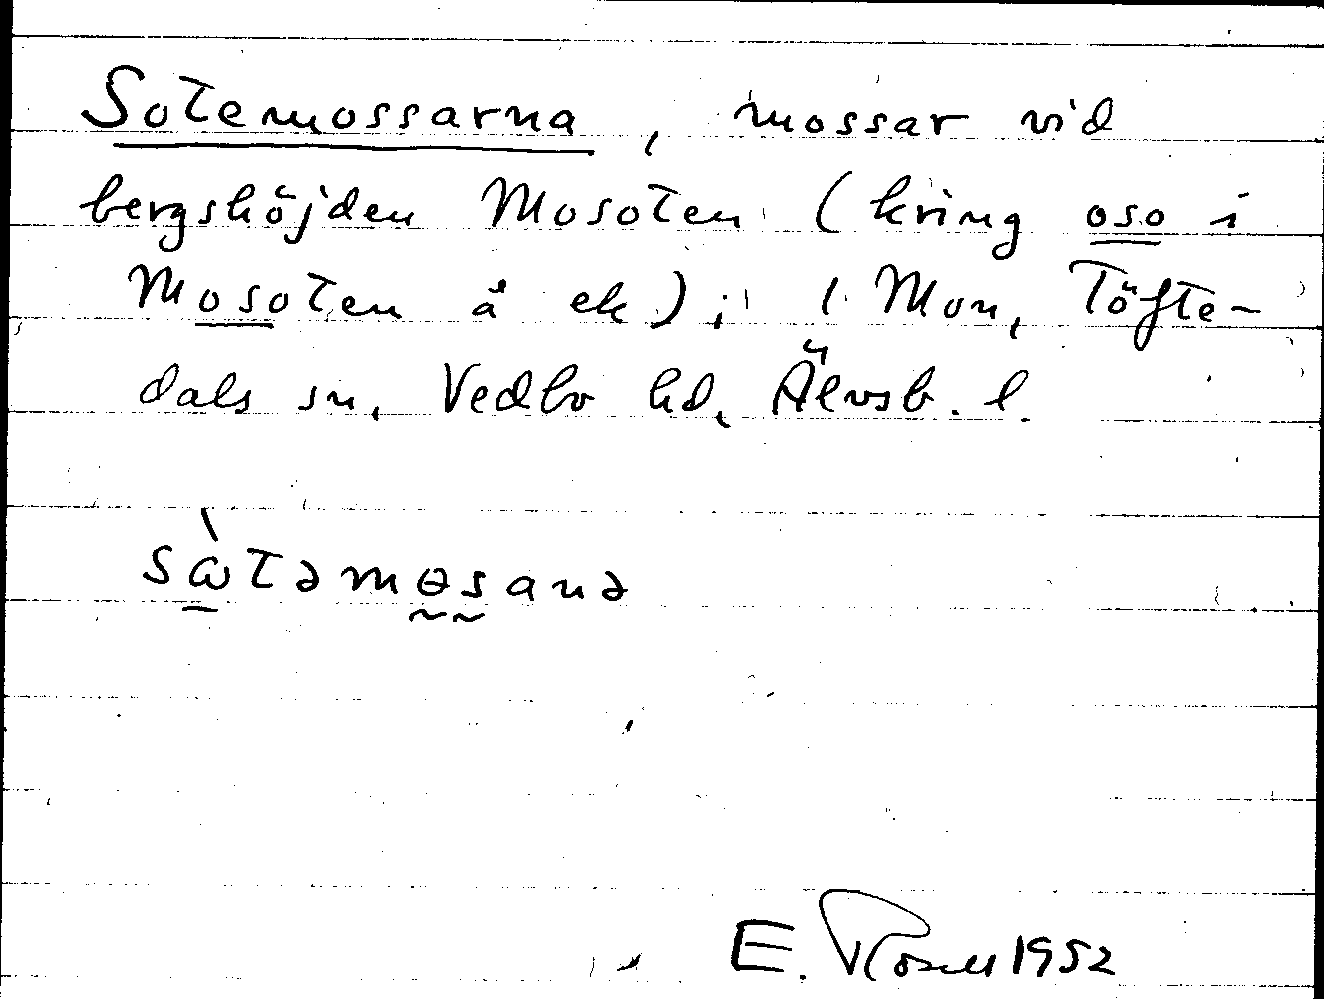 Sotemossarna, mossar vid
bergshöjden Mosoten (kring oso i
Mosoten å ek); i Mon, Töfte-
dals sn, Vedbo hd, Älvsb. l.
sὼtəmɵsanə
E. Rosell 1952